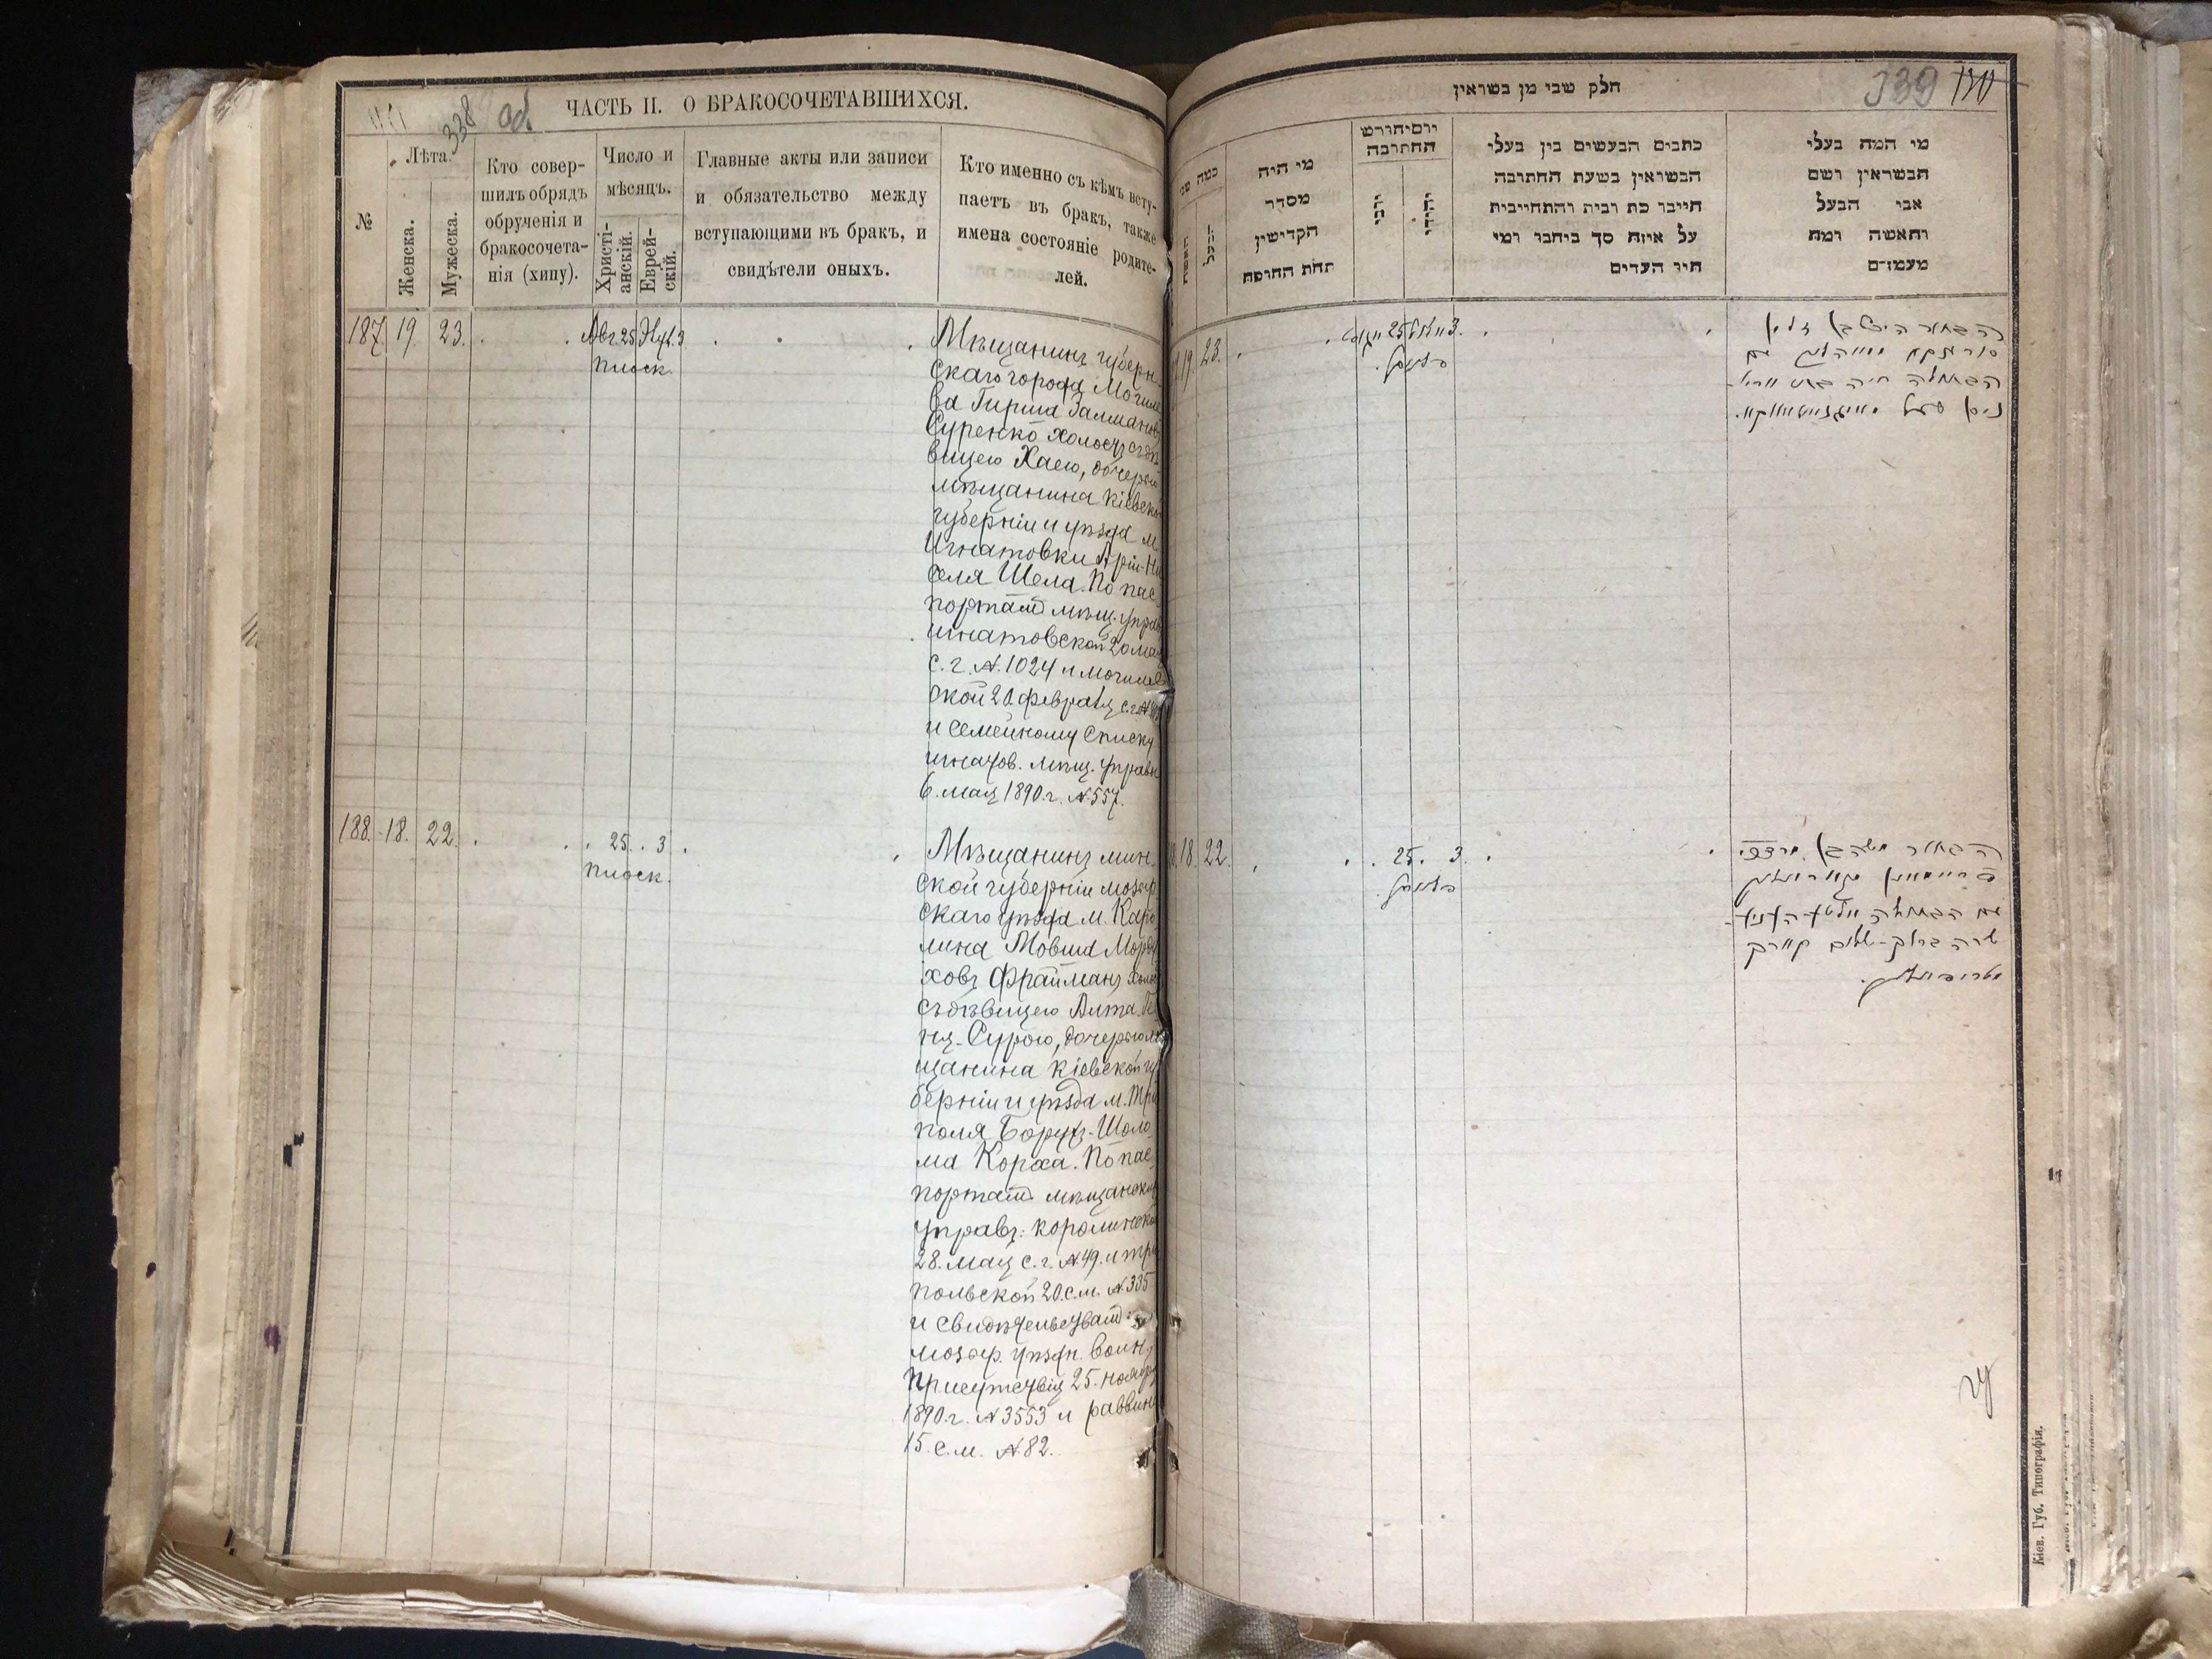 338 об.
ЧАСТЬ II. О БРАКОСОЧЕТАВШИХСЯ.
№
Лѣта.
Женска.
Мужеска.
Кто совер-
шилъ обрядъ
обрученія и
бракосочета-
нія (хипу).
Число и
мѣсяцъ.
Христі-
анскій.
Еврей-
скій.
Главные акты или записи
и обязательство между
вступающими въ бракъ, и
свидѣтели оныхъ.
Кто именно съ кѣмъ всту-
паетъ въ бракъ, также
имена состояніе родите-
лей.
187. 19. 23. Авг. 25 Элул. 3
Плоск.
Мѣщанинъ губерн-
скаго города Могиле
ва Гирша Залманов
Суренко холост съ дѣ
вицею Хаею, дочерью
мѣщанина Кіевско
губерніи и уѣзда м.
Игнатовки Арій-Ни
селя Шела. По пас-
портам мѣщ. управ
игнатовской 20 мая
с. г. №. 1024 и могилев
ской 20 февраля с. г.
и семейному списку
игнатов. мѣщ. управы
6. мая 1890. г. №. 557.
188. 18. 22. 25. 3
Плоск.
Мѣщанинъ мин-
ской губерніи мозыр
скаго уѣзда м. Каро
лина Мовша Морду
ховъ Фрайманъ холос
съ дѣвицею Алта-Ге
ня-Сурою, дочерью мѣ
щанина Кіевской гу
берніи и уѣзда м. Три
поля Борух-Шоло
ма Корха. По пас-
портам мѣщанских
управъ: королинской
28. мая с. г. №. 49. и три
польской 20. с. м. №. 335
и свидѣтельствам:
мозыр. уѣздн. воин.
присутствія 25. ноября
1890. г. № 3553 и раввина
15. с. м. №. 82.
339 130
חלק שבי מן בשראין
כמה שני
האשה
הבעל
מי היה
מסדר
הקדישין
תחת החופה
יום יחורש
החתובה
כתבים הבעשים בין בעלי
הבשואין בשעת החתובה
חייבו כת רבית והתחייבית
על איזה סך ביחבו ומי
היו העדים
מי המה בעלי
הבשראין ושם
אבי הבעל
והאשה ומה
מעמדם
19. 23. 25 3.
הבחור הירש בן זלמן
הבתולה חיה בת אריה
18. 22. 25. 3.
הבחור משה בן מרדכי
פריימאן
עם הבתולה אלטע העניע
שרה ברוך-שלום קורך
Кіев. Губ. Типографія.